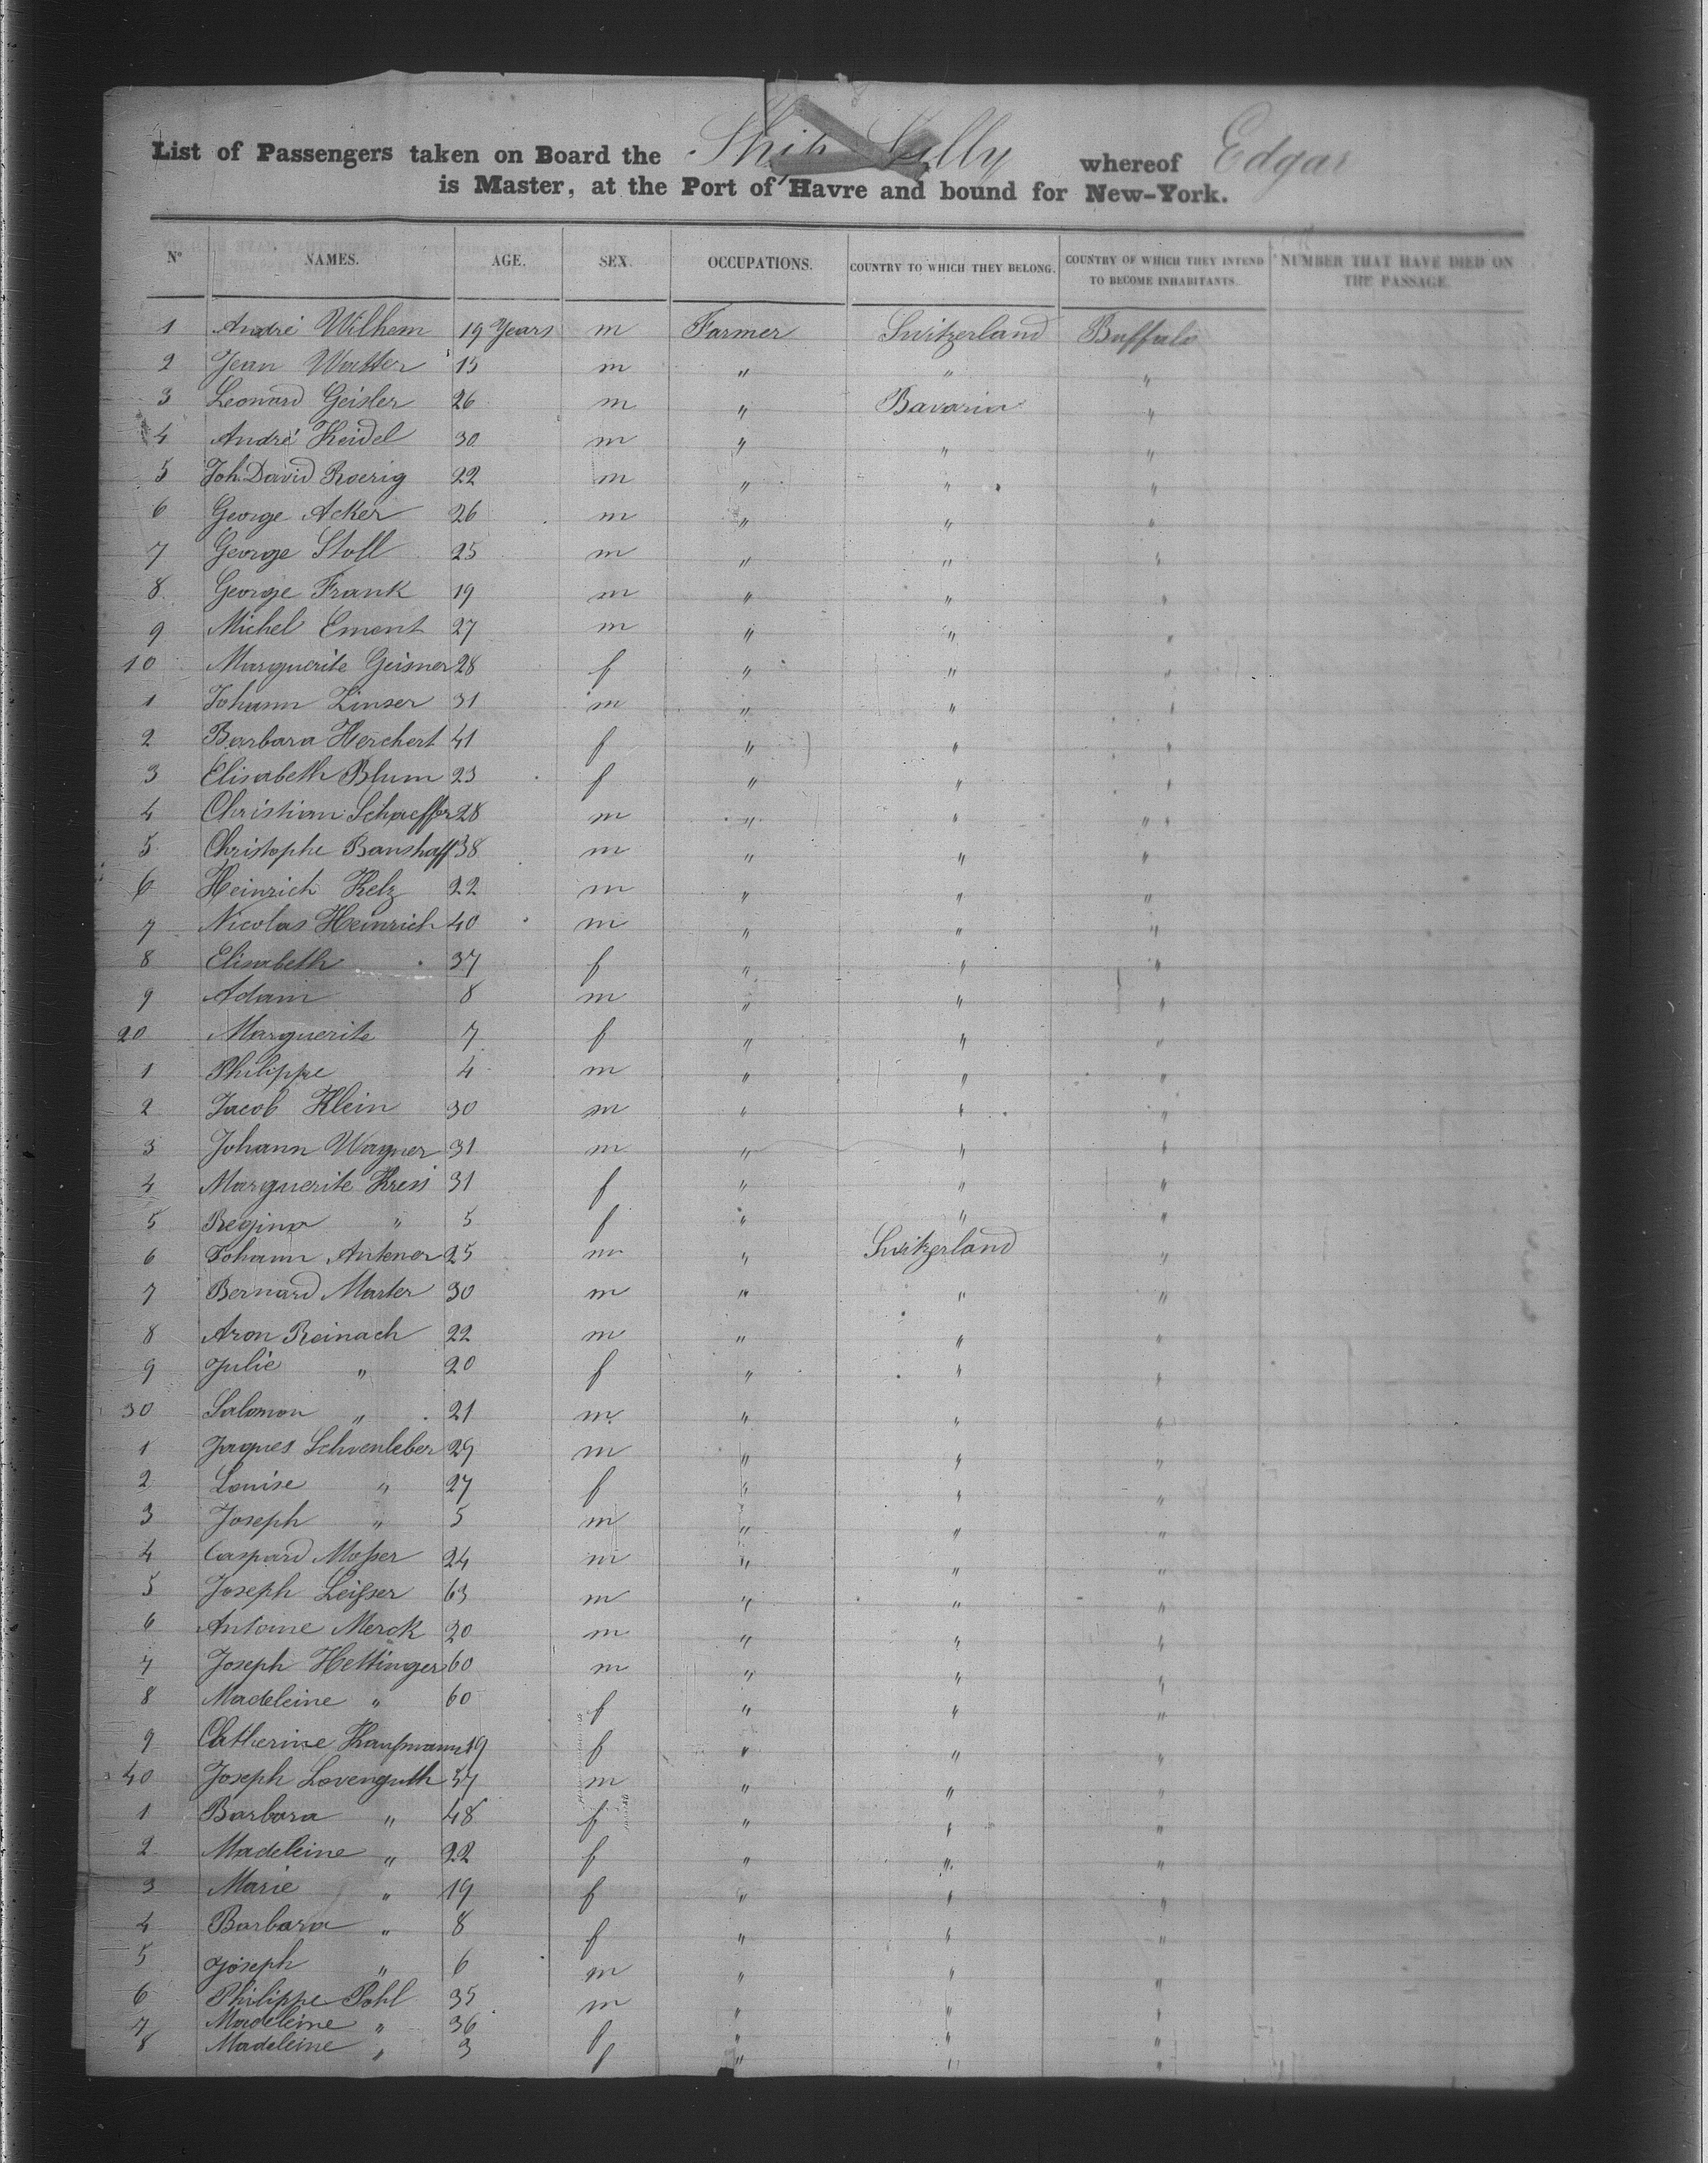 List of Passengers taken on Board the Ship Sully whereof Edgar
is Master, at the Port of Havre and bound for New-York.
No NAMES. AGE. SEX. OCCUPATIONS. COUNTRY TO WHICH THEY BELONG. COUNTRY OF WHICH THEY INTEND TO BECOME INHABITANTS. NUMBER THAT HAVE DIED ON THE PASSAGE.
1 André Wilhem 19 Years m Farmer Switzerland Buffalo
2 Jean Watter 15 m " " "
3 Leonard Geisler 26 m " Bavaria "
4 André Keidel 30 m " " "
5 Joh. David Roerig 22 m " " "
6 George Acker 26 m " " "
7 George Stoll 25 m " " "
8 George Frank 19 m " " "
9 Michel Ement 27 m " " "
10 Marguerite Geismer 28 f " " "
1 Johann Linser 31 m " " "
2 Barbara Herchert 41 f " " "
3 Elisabeth Blum 23 f " " "
4 Christian Schaeffer 28 m " " "
5 Christophe Banshaff 38 m " " "
6 Heinrich Kelz 22 m " " "
7 Nicolas Heinrich 40 m " " "
8 Elisabeth 37 f " " "
9 Adam 8 m " " "
20 Marguerite 7 f " " "
1 Philippe 4 m " " "
2 Jacob Klein 30 m " " "
3 Johann Wagner 31 m " " "
4 Marguerite Kreis 31 f " " "
5 Regina " 5 f " " "
6 Johann Antener 25 m " Switzerland "
7 Bernard Marter 30 m " " "
8 Aron Reinach 22 m " " "
9 Julie " 20 f " " "
30 Salomon " 21 m " " "
1 Jaques Schoenleber 29 m " " "
2 Louise " 27 f " " "
3 Joseph " 5 m " " "
4 Caspard Moſser 24 m " " "
5 Joseph Leiſser 63 m " " "
6 Antoine Merck 20 m " " "
7 Joseph Hettinger 60 m " " "
8 Madeleine " 60 f " " "
9 Catherine Kaufmann 19 f " " "
40 Joseph Lovenguth 57 m " " "
1 Barbara " 48 f " " "
2 Madeleine " 22 f " " "
3 Marie " 19 f " " "
4 Barbara " 8 f " " "
5 Joseph " 6 m " " "
6 Philippe Pohl 35 m " " "
7 Madeleine " 36 f " " "
8 Madeleine " 3 f " " "